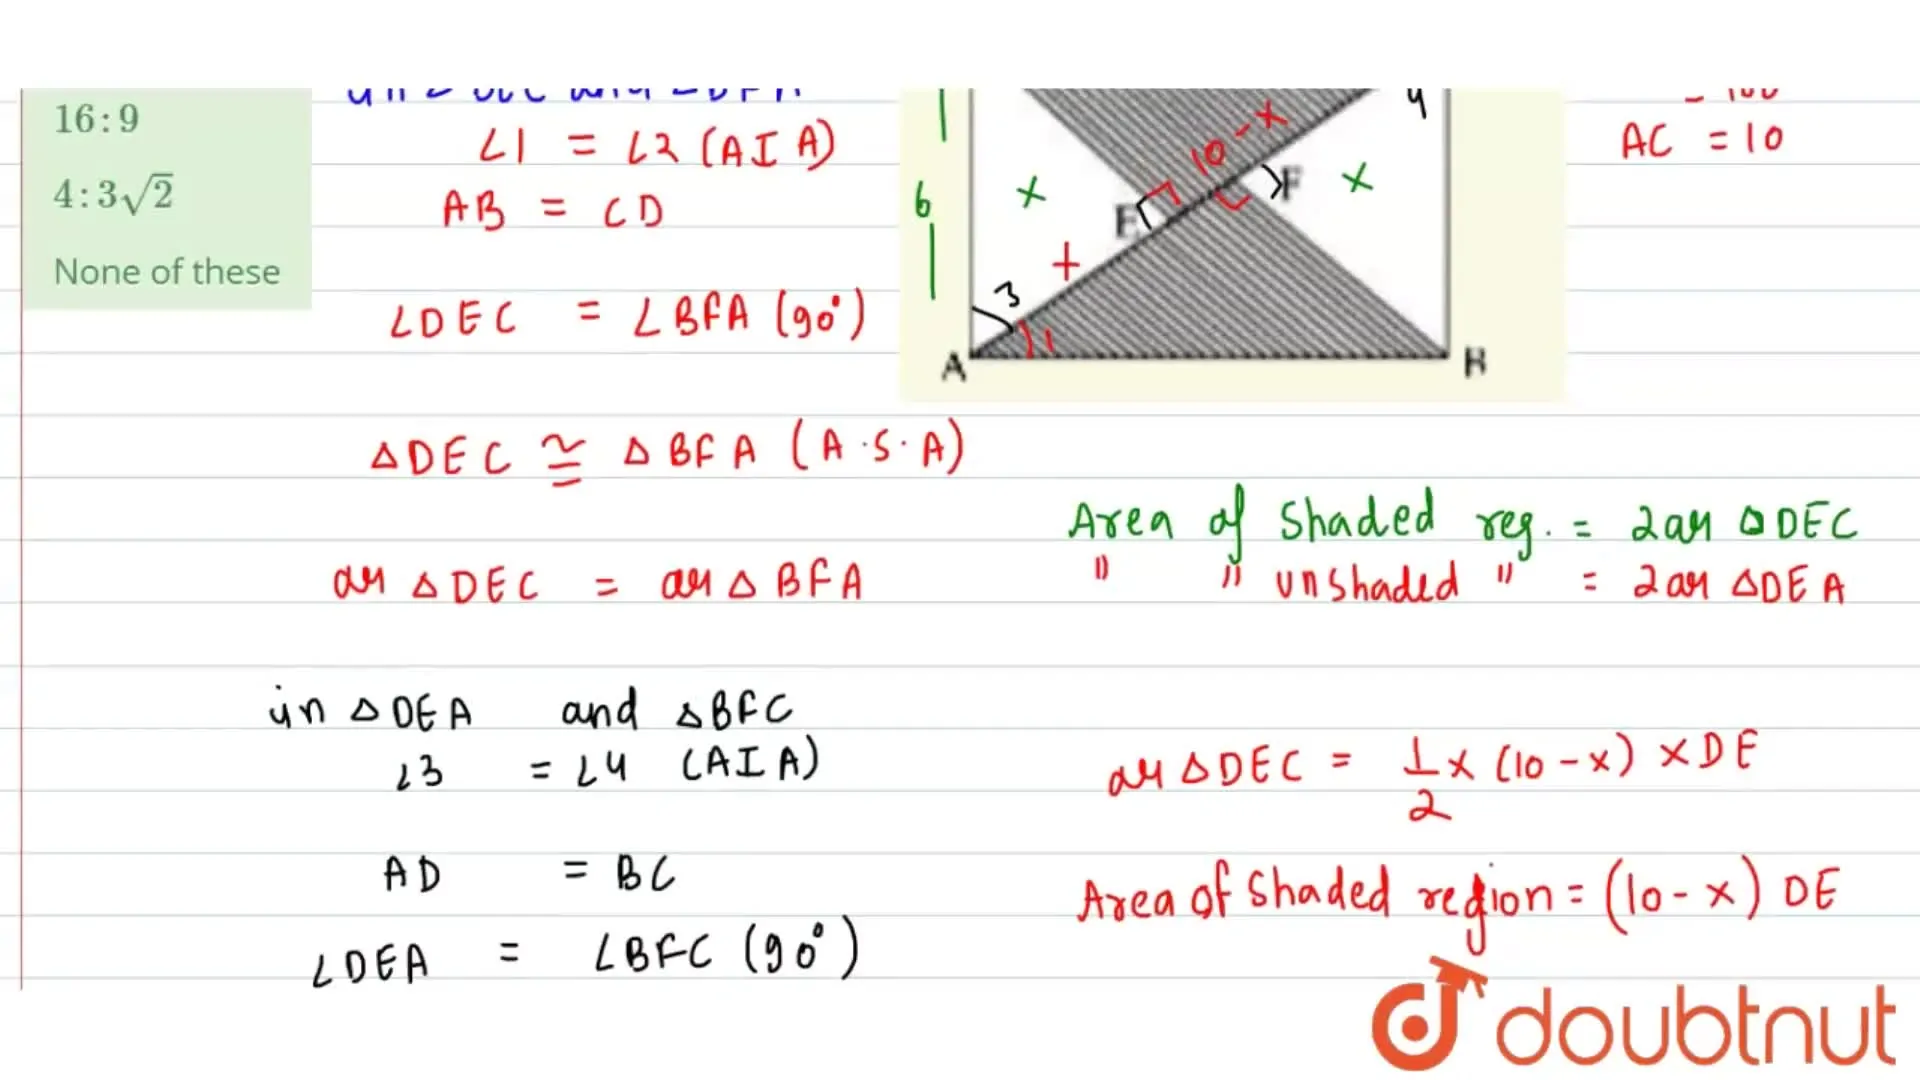 16 : 9
4 : 3√2
None of these
∠1 = ∠2 (AIA)
AB = CD
∠DEC = ∠BFA (90°)
△DEC ≅ △BFA (A.S.A)
ar △DEC = ar △BFA
in △DEA and △BFC
∠3 = ∠4 (AIA)
AD = BC
∠DEA = ∠BFC (90°)
10-x
4
6
x
E
F
x
3
1
A
B
= 100
AC = 10
Area of shaded reg. = 2ar △DEC
" " unshaded " = 2ar △DEA
ar △DEC = 1/2 x (10-x) x DE
Area of shaded region = (10-x) DE
doubtnut